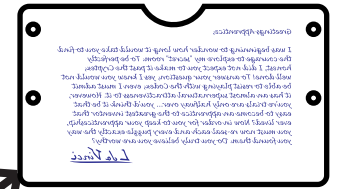 Greetings Apprentice,
I was beginning to wonder how long it would take you to find
the courage to explore my "secret" room. To be perfectly
honest, I did not expect you to make it past the Cryptex,
well done! To answer your question, yes I knew you would not
be able to resist playing with the Codex, even I must admit
it has an almost supernatural attractiveness to it. However,
your trials are only halfway over... you'd think it be that
easy to become an apprentice to the greatest inventor that
ever lived? Now in order for you to keep your apprenticeship,
you must now re-seal each and every puzzle exactly the way
you found them. Do you truly believe you are worthy?
L. da Vinci